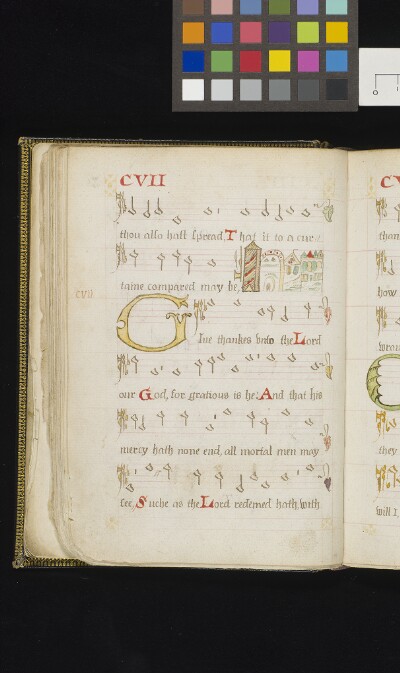 CVII
thou also hast spread, That it to a cur
taine compared may be,
CVII
Giue thankes vnto the Lord
our God, for gratious is he: And that his
mercy hath none end, all mortal men may
see, Suche as the Lord redemed hath, with
CV
than
how
they
will I